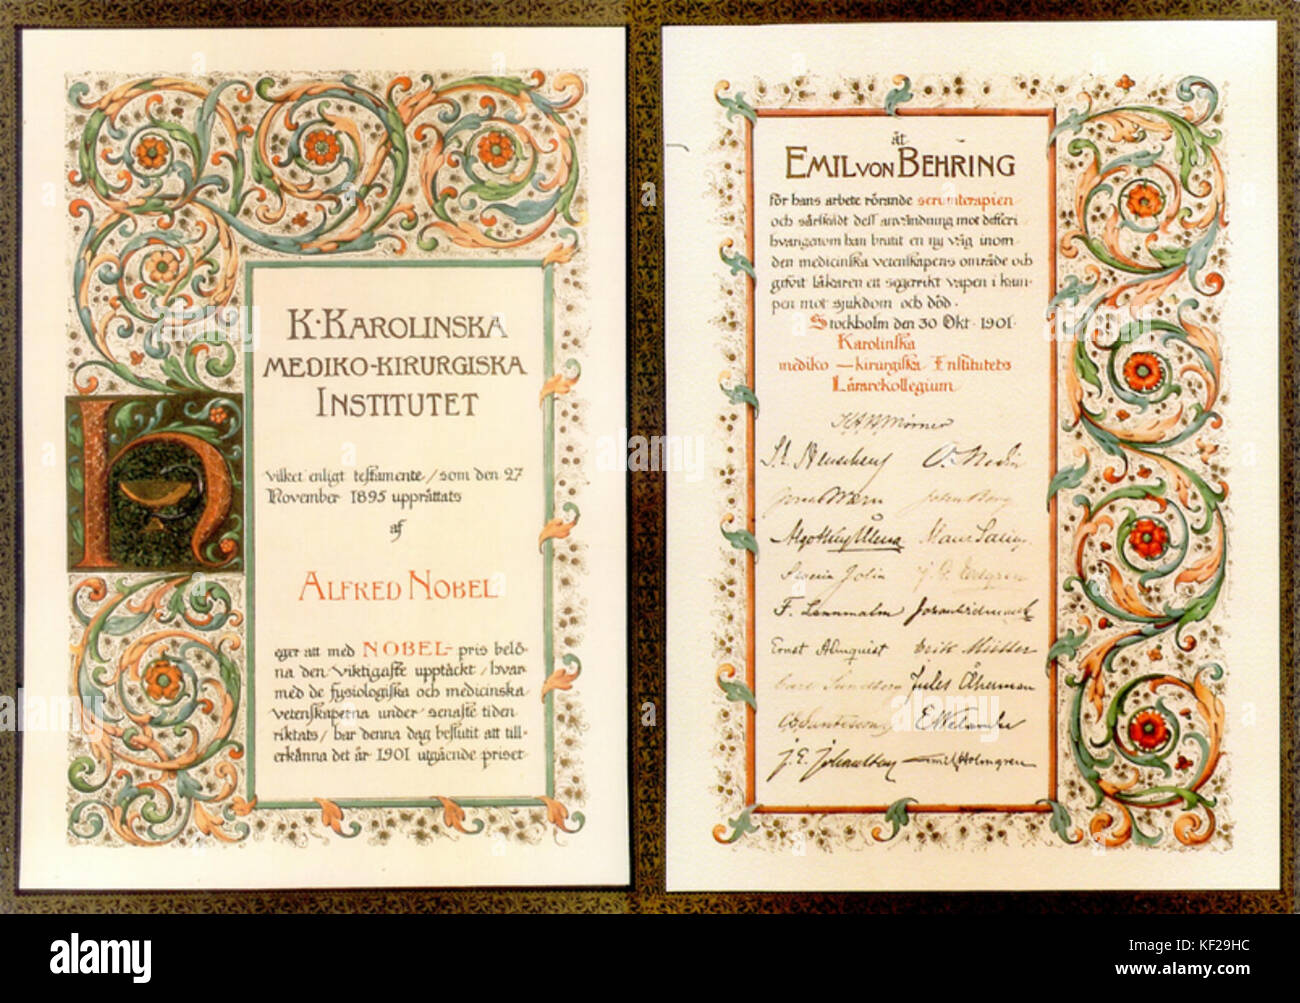 K. KAROLINSKA
MEDIKO-KIRURGISKA
INSTITUTET
vilket enligt testamente, som den 27
November 1895 upprättats
af
ALFRED NOBEL
eger att med NOBEL- pris belö-
na den viktigaste upptäckt, hvar-
med de fysiologiska och medicinska
vetenskaperna under senaste tiden
riktats, har denna dag beslutit att till-
erkänna det år 1901 utgående priset
åt
EMIL VON BEHRING
för hans arbete rörande serumterapien
och särskildt dess användning mot difteri
hvarigenom han brutit en ny väg inom
den medicinska vetenskapens område och
gifvit läkaren ett segerrikt vapen i kam-
pen mot sjukdom och död.
Stockholm den 30 Okt. 1901.
Karolinska
mediko-kirurgiska Institutets
Lärarekollegium
Mörner
John Berg
Severin Jolin
F. Lennmalm
Ernst Almquist Erik Müller
Carl Sundberg Jules Åkerman
J. E. Johansson Emil Holmgren
alamy
Image ID: KF29HC
www.alamy.com